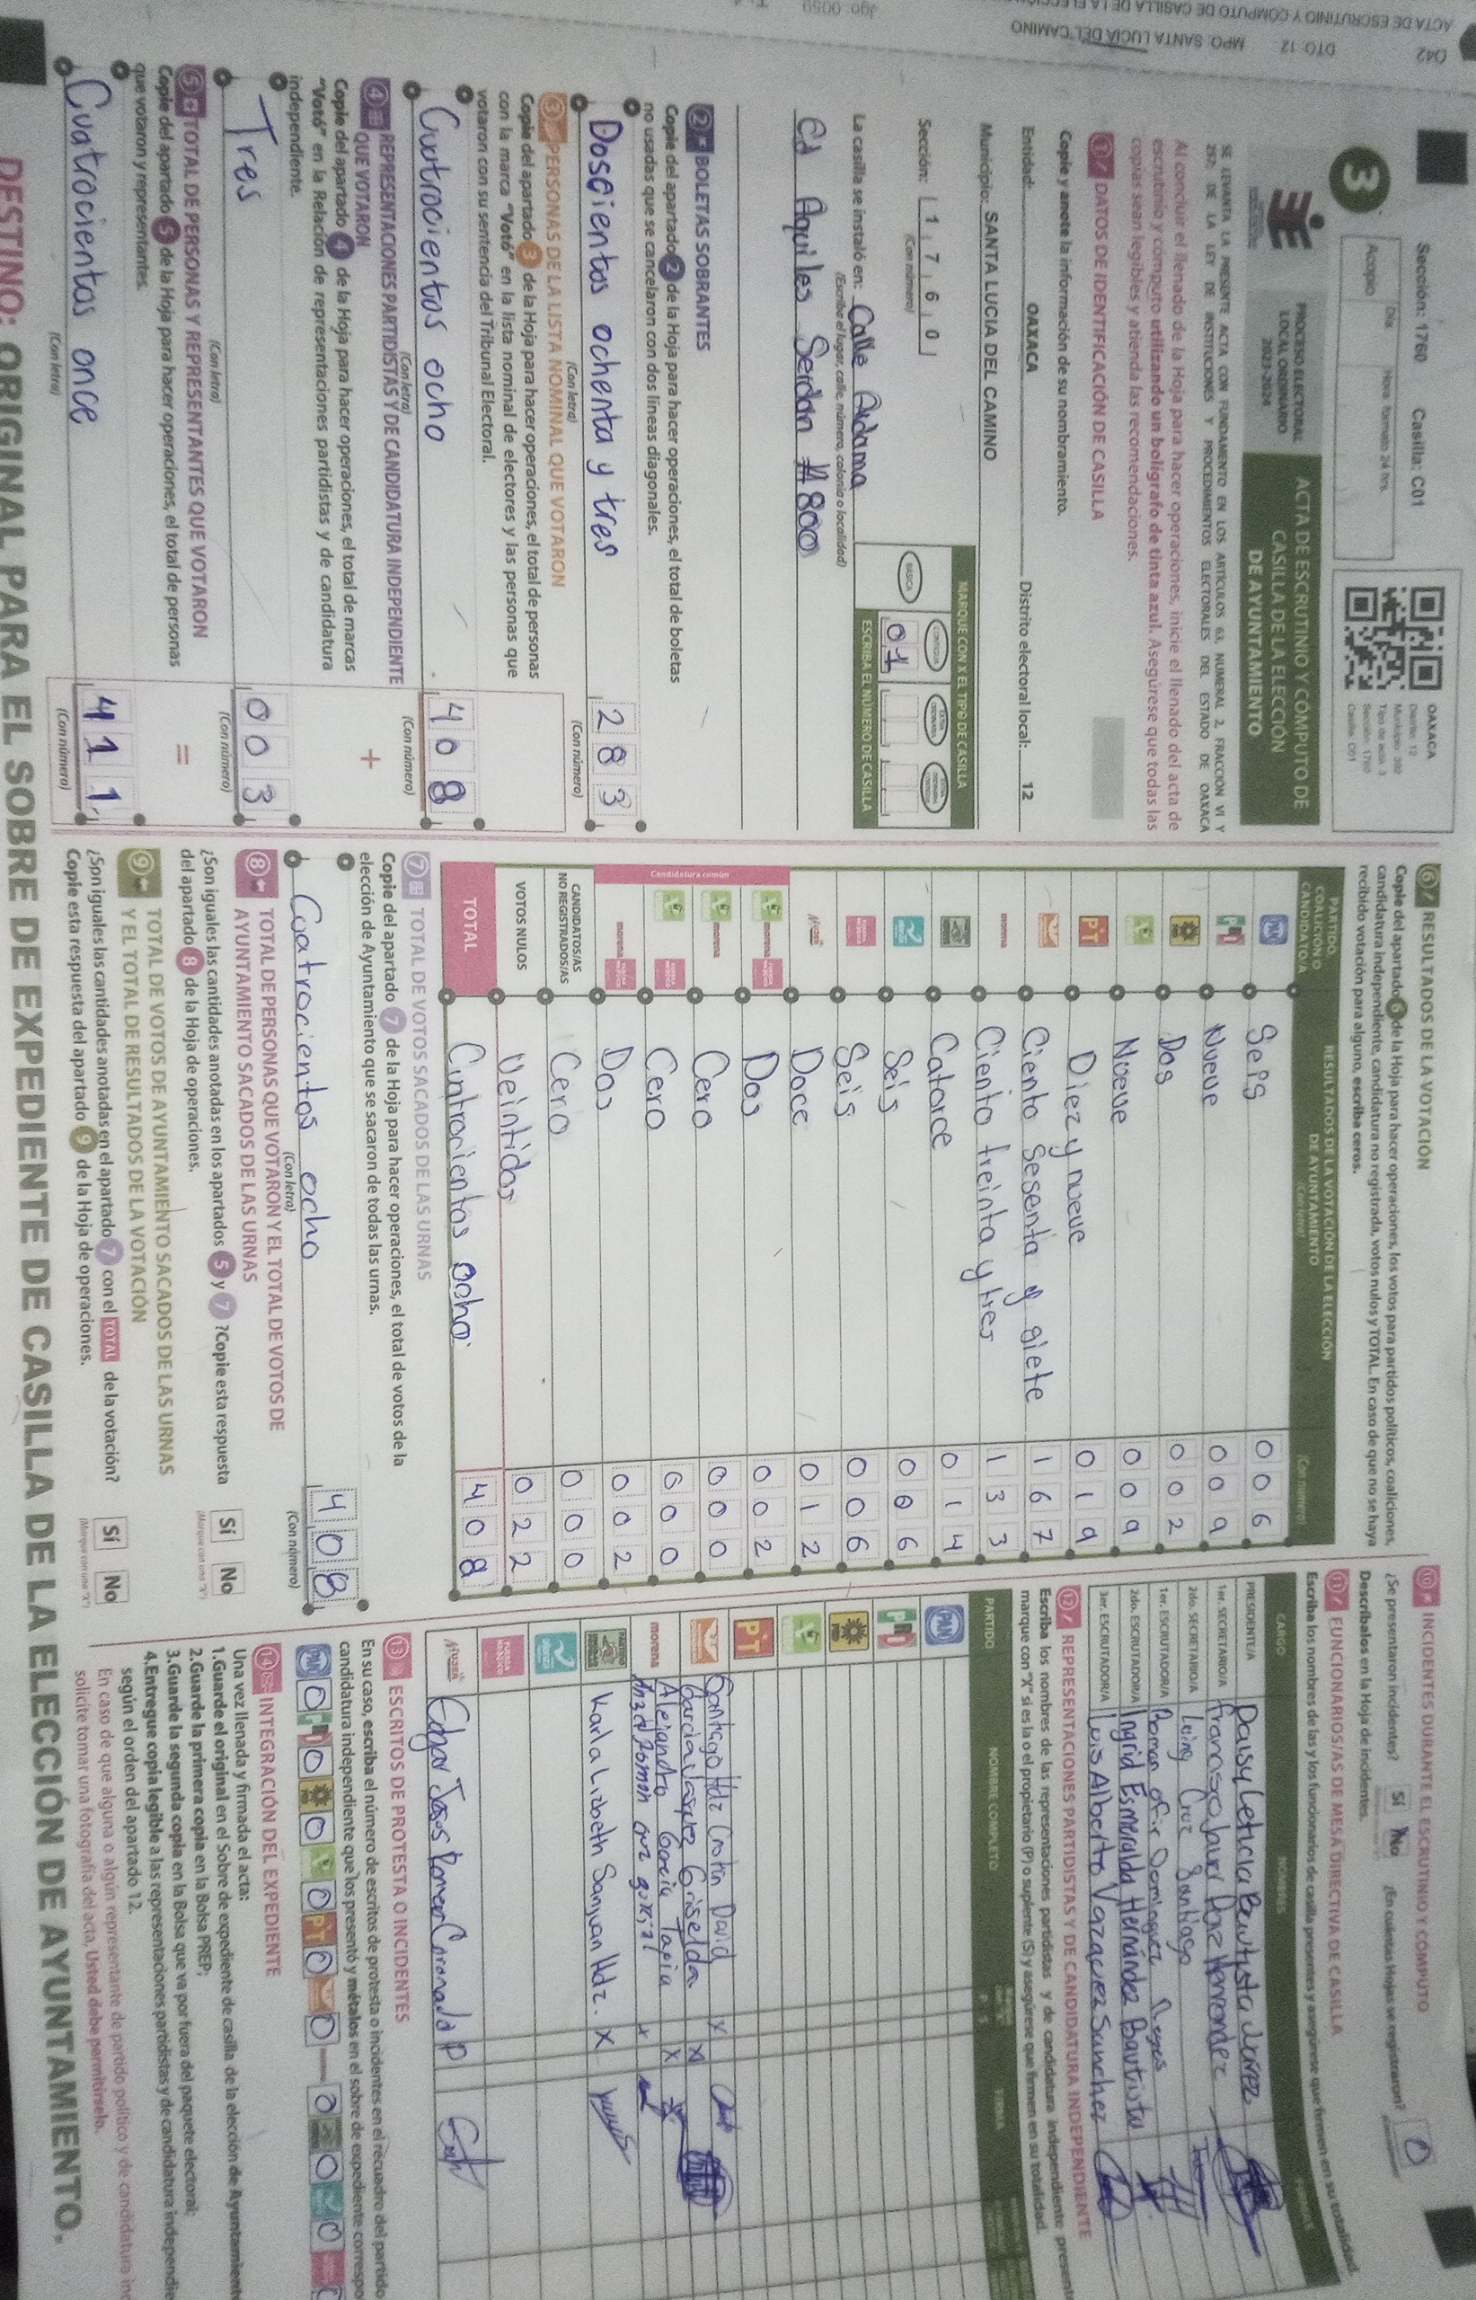 042 DTO. 12 MPO. SANTA LUCIA DEL CAMINO
Sección: 1760 Casilla: C01
OAXACA
Distrito: 12
Tipo de acta: 3
Sección: 1760
Casilla: C01
3
Acopio
Día
Hora formato 24 hrs.
PROCESO ELECTORAL
LOCAL ORDINARIO
2023-2024
ACTA DE ESCRUTINIO Y CÓMPUTO DE
CASILLA DE LA ELECCIÓN
DE AYUNTAMIENTO
SE LEVANTA LA PRESENTE ACTA CON FUNDAMENTO EN LOS ARTÍCULOS 63, NUMERAL 2, FRACCIÓN VI Y
252, DE LA LEY DE INSTITUCIONES Y PROCEDIMIENTOS ELECTORALES DEL ESTADO DE OAXACA
Al concluir el llenado de la Hoja para hacer operaciones, inicie el llenado del acta de
escrutinio y cómputo utilizando un bolígrafo de tinta azul. Asegúrese que todas las
copias sean legibles y atienda las recomendaciones.
1 DATOS DE IDENTIFICACIÓN DE CASILLA
Copie y anote la información de su nombramiento.
Entidad: OAXACA Distrito electoral local: 12
Municipio: SANTA LUCIA DEL CAMINO
Sección: 1 7 6 0
(Con número)
MARQUE CON X EL TIPO DE CASILLA
BÁSICA CONTIGUA
01
ESCRIBA EL NÚMERO DE CASILLA
La casilla se instaló en: Calle Aldama
(Escriba el lugar, calle, número, colonia o localidad)
Cd Aquiles Serdan #800
2 BOLETAS SOBRANTES
Copie del apartado 2 de la Hoja para hacer operaciones, el total de boletas
no usadas que se cancelaron con dos líneas diagonales.
Doscientos ochenta y tres 2 8 3
(Con letra) (Con número)
3 PERSONAS DE LA LISTA NOMINAL QUE VOTARON
Copie del apartado 3 de la Hoja para hacer operaciones, el total de personas
con la marca "Votó" en la lista nominal de electores y las personas que
votaron con su sentencia del Tribunal Electoral.
Cuatrocientos ocho 4 0 8
(Con letra) (Con número)
4 REPRESENTACIONES PARTIDISTAS Y DE CANDIDATURA INDEPENDIENTE
QUE VOTARON +
Copie del apartado 4 de la Hoja para hacer operaciones, el total de marcas
"Votó" en la Relación de representaciones partidistas y de candidatura
independiente.
Tres 0 0 3
(Con letra) (Con número)
5 TOTAL DE PERSONAS Y REPRESENTANTES QUE VOTARON =
Copie del apartado 5 de la Hoja para hacer operaciones, el total de personas
que votaron y representantes.
Cuatrocientos once 4 1 1
(Con letra) (Con número)
6 RESULTADOS DE LA VOTACIÓN
Copie del apartado 6 de la Hoja para hacer operaciones, los votos para partidos políticos, coaliciones,
candidatura independiente, candidatura no registrada, votos nulos y TOTAL. En caso de que no se haya
recibido votación para alguno, escriba ceros.
PARTIDO, COALICIÓN O CANDIDATO/A
RESULTADOS DE LA VOTACIÓN DE LA ELECCIÓN
DE AYUNTAMIENTO
(Con letra) (Con número)
PAN Seis 0 0 6
PRI Nueve 0 0 9
Dos 0 0 2
Nueve 0 0 9
PT Diez y nueve 0 1 9
Ciento Sesenta y siete 1 6 7
morena Ciento treinta y tres 1 3 3
Catorce 0 1 4
Seis 0 0 6
Seis 0 0 6
Doce 0 1 2
Candidatura común
morena Dos 0 0 2
morena Cero 0 0 0
Cero 0 0 0
morena Dos 0 0 2
CANDIDATOS/AS
NO REGISTRADOS/AS Cero 0 0 0
VOTOS NULOS Veintidos 0 2 2
TOTAL Cuatrocientos ocho 4 0 8
7 TOTAL DE VOTOS SACADOS DE LAS URNAS
Copie del apartado 7 de la Hoja para hacer operaciones, el total de votos de la
elección de Ayuntamiento que se sacaron de todas las urnas.
Cuatrocientos ocho 4 0 8
(Con letra) (Con número)
8 TOTAL DE PERSONAS QUE VOTARON Y EL TOTAL DE VOTOS DE
AYUNTAMIENTO SACADOS DE LAS URNAS
¿Son iguales las cantidades anotadas en los apartados 5 y 7 ?Copie esta respuesta
del apartado 8 de la Hoja de operaciones.
Sí No
9 TOTAL DE VOTOS DE AYUNTAMIENTO SACADOS DE LAS URNAS
Y EL TOTAL DE RESULTADOS DE LA VOTACIÓN
¿Son iguales las cantidades anotadas en el apartado 7 con el TOTAL de la votación?
Copie esta respuesta del apartado 9 de la Hoja de operaciones.
Sí No
10 INCIDENTES DURANTE EL ESCRUTINIO Y CÓMPUTO
¿Se presentaron incidentes? Sí No ¿En cuántas Hojas se registraron? 0
Descríbalos en la Hoja de incidentes.
11 FUNCIONARIOS/AS DE MESA DIRECTIVA DE CASILLA
Escriba los nombres de las y los funcionarios de casilla presentes y asegúrese que firmen en su totalidad.
CARGO NOMBRES
PRESIDENTE/A Daisy Leticia Bautista
1er. SECRETARIO/A Francisco Javier Diaz Hernandez
2do. SECRETARIO/A Cruz Santiago
1er. ESCRUTADOR/A Dominguez Reyes
2do. ESCRUTADOR/A Ingrid Esmeralda Hernández Bautista
3er. ESCRUTADOR/A Luis Alberto Vazquez Sanchez
12 REPRESENTACIONES PARTIDISTAS Y DE CANDIDATURA INDEPENDIENTE
Escriba los nombres de las representaciones partidistas y de candidatura independiente
marque con "X" si es la o el propietario (P) o suplente (S) y asegúrese que firmen en su totalidad.
PARTIDO NOMBRE COMPLETO FIRMA
PAN
PRI
PT
Santiago Hdz David X
Garcia Vasquez Griselda X
morena Alejandro Garcia Tapia X
Karla Lizbeth Sanjuan Hdz. X
Edgar P
13 ESCRITOS DE PROTESTA O INCIDENTES
En su caso, escriba el número de escritos de protesta o incidentes en el recuadro del partido
candidatura independiente que los presentó y métalos en el sobre de expediente
PAN 0 PRI 0 0 0 PT 0 0 0 0 0
14 INTEGRACIÓN DEL EXPEDIENTE
Una vez llenada y firmada el acta:
1.Guarde el original en el Sobre de expediente de casilla de la elección de
2.Guarde la primera copia en la Bolsa PREP;
3.Guarde la segunda copia en la Bolsa que va por fuera del paquete electoral;
4.Entregue copia legible a las representaciones partidistas y de candidatura
según el orden del apartado 12.
En caso de que alguna o algún representante de partido político y de candidatura
solicite tomar una fotografía del acta, Usted debe permitírselo.
DESTINO: ORIGINAL PARA EL SOBRE DE EXPEDIENTE DE CASILLA DE LA ELECCIÓN DE AYUNTAMIENTO.